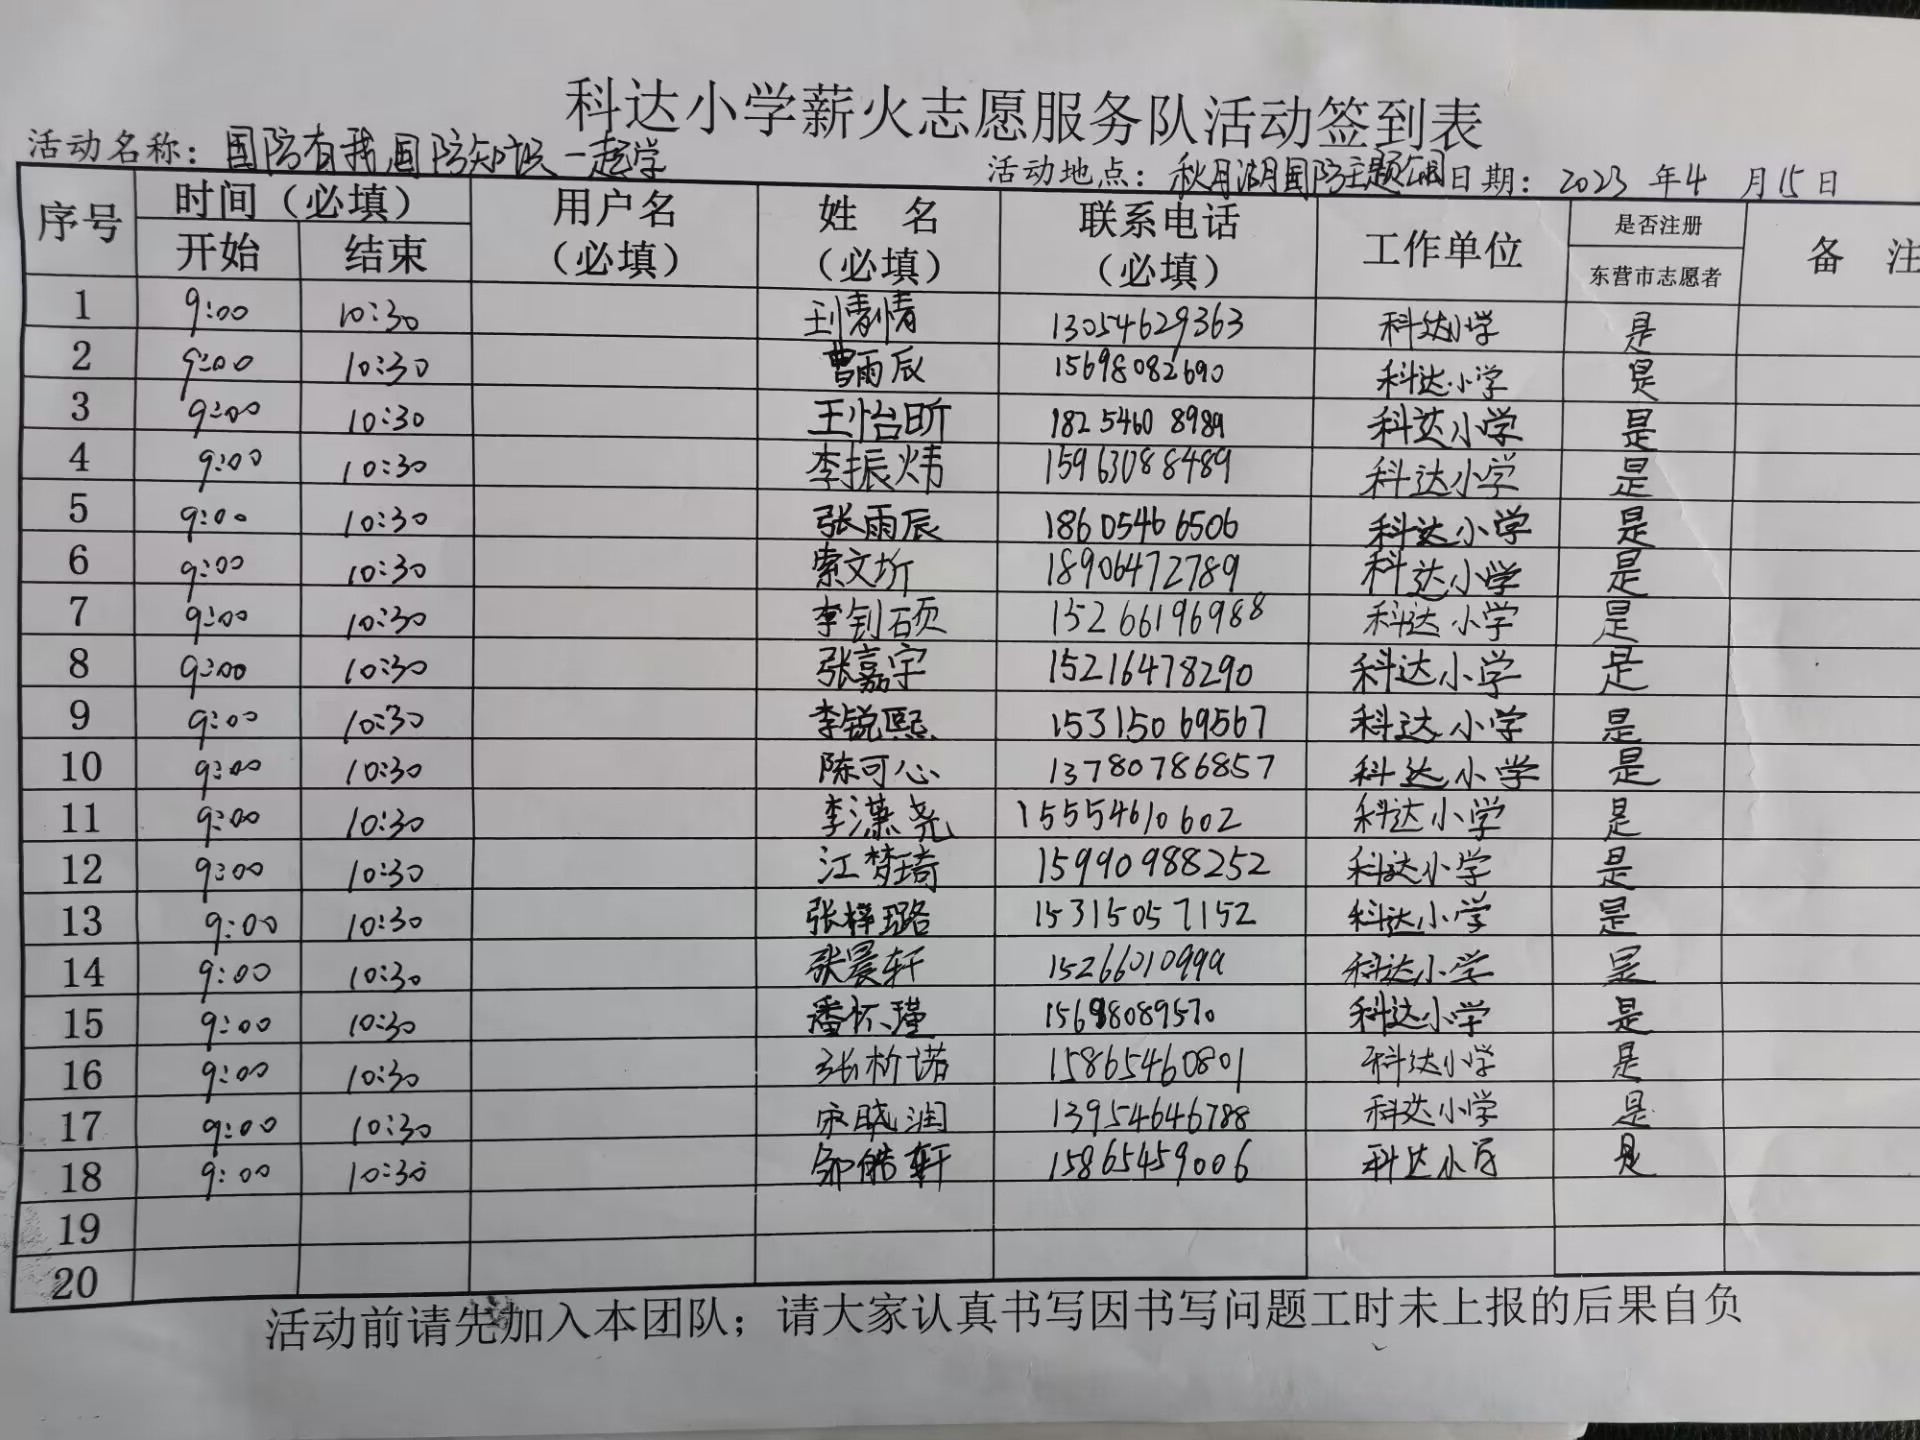 科达小学薪火志愿服务队活动签到表
活动名称：国防有我国防知识一起学 活动地点：秋月湖国防主题公园 日期：2023年4月15日
序号 时间（必填） 用户名（必填） 姓 名（必填） 联系电话（必填） 工作单位 是否注册 备 注
开始 结束 东营市志愿者
1 9:00 10:30 13054629363 科达小学 是
2 9:00 10:30 曹雨辰 15698082690 科达小学 是
3 9:00 10:30 王怡昕 182 5460 8989 科达小学 是
4 9:00 10:30 李振炜 15963088489 科达小学 是
5 9:00 10:30 张雨辰 18605466506 科达小学 是
6 9:00 10:30 索文圻 18906472789 科达小学 是
7 9:00 10:30 李钊硕 15266196988 科达小学 是
8 9:00 10:30 张嘉宇 15216478290 科达小学 是
9 9:00 10:30 李锐熙 15315069567 科达小学 是
10 9:00 10:30 陈可心 13780786857 科达小学 是
11 9:00 10:30 李潇尧 15554610602 科达小学 是
12 9:00 10:30 江梦琦 15990988252 科达小学 是
13 9:00 10:30 张梓璐 15315057152 科达小学 是
14 9:00 10:30 张晨轩 15266010999 科达小学 是
15 9:00 10:30 潘怀瑾 15698089570 科达小学 是
16 9:00 10:30 张析诺 15865460801 科达小学 是
17 9:00 10:30 宋晓润 13954646788 科达小学 是
18 9:00 10:30 邹皓轩 15865459006 科达小学 是
19
20
活动前请先加入本团队；请大家认真书写因书写问题工时未上报的后果自负